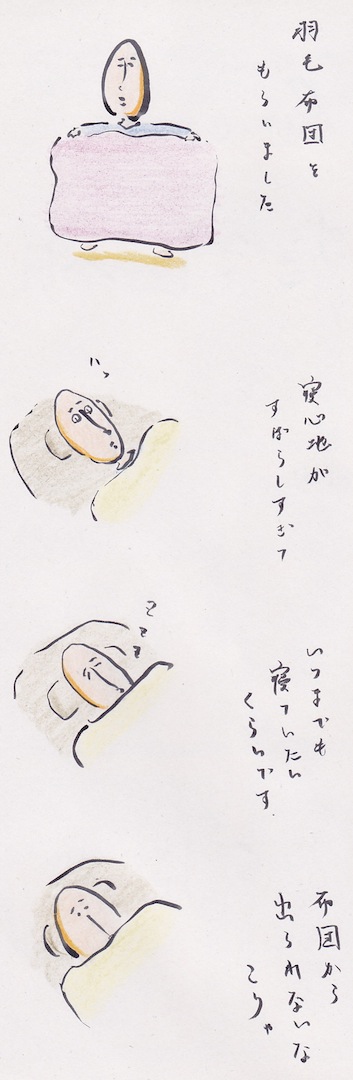 羽毛布団を
もらいました
ハッ
寝心地が
すばらしすぎて
zzz
いつまでも
寝ていたい
くらいです.
布団から
出られないな
こりゃ